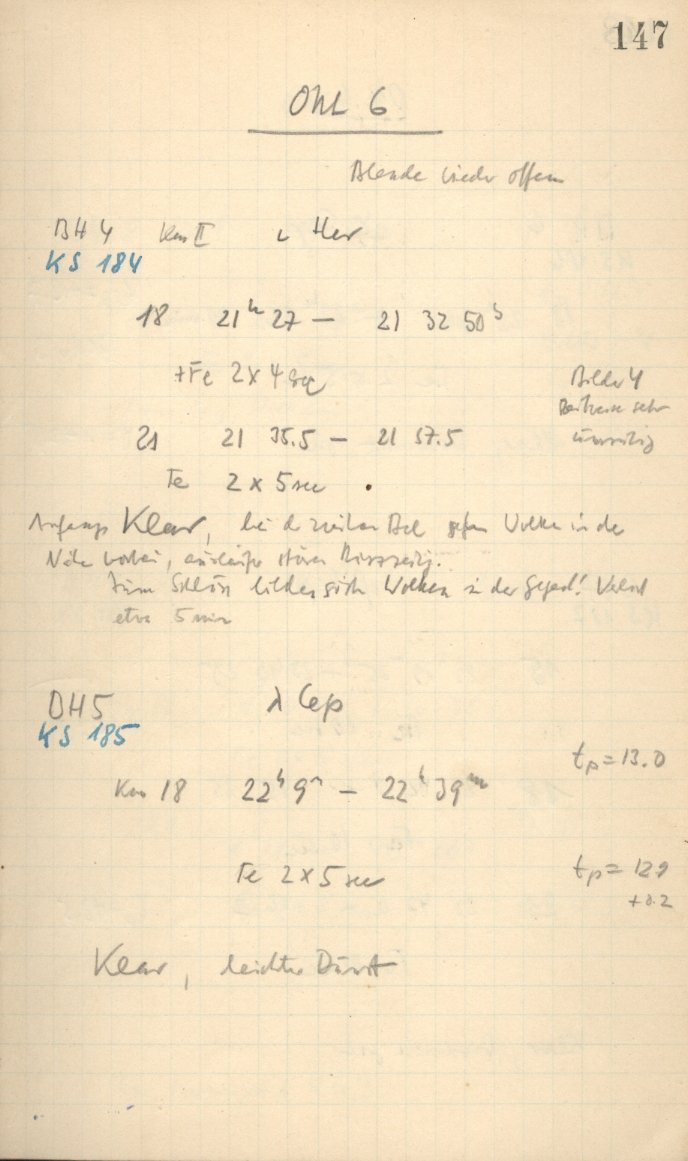 147
OHL 6
Blende wieder offen
BH 4 Km II ι Her
KS 184
18 21ʰ 27 – 21 32 50ˢ
+Fe 2 × 4 sec
Bilder 4
zeitweise sehr
unruhig
21 21 35.5 – 21 57.5
Fe 2 × 5 sec
Anfangs Klar, bei der zweiten Wolke in der
Nähe vorbei,
Zum Schluss bilden sich Wolken in der Gegend! Verlust
etwa 5 min
BH5 λ Cep
KS 185
tₚ = 13.0
Km 18 22ʰ 9ᵐ – 22ʰ 39ᵐ
Fe 2 × 5 sec
tₚ = 12.9
+0.2
Klar, leichter Dunst